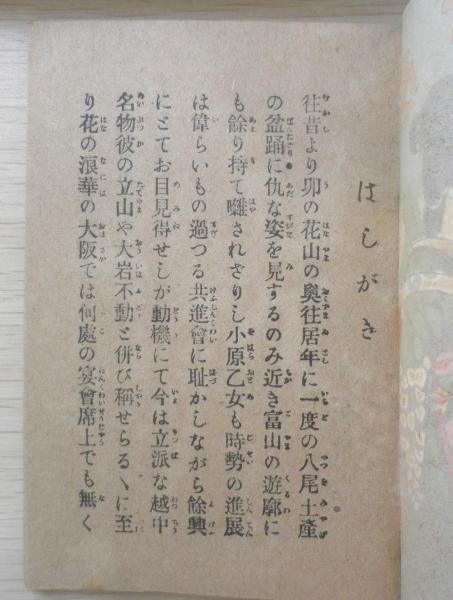 はしがき
往昔より卯の花山の奥往居年に一度の八尾土產
の盆踊に仇な姿を見するのみ近き富山の遊廓に
も餘り持て囃されざりし小原乙女も時勢の進展
は偉らいもの過つる共進會に耻かしながら餘興
にとてお目見得せしが動機にて今は立派な越中
名物彼の立山や大岩不動と併び稱せらるゝに至
り花の浪華の大阪では何處の宴會席上でも無く